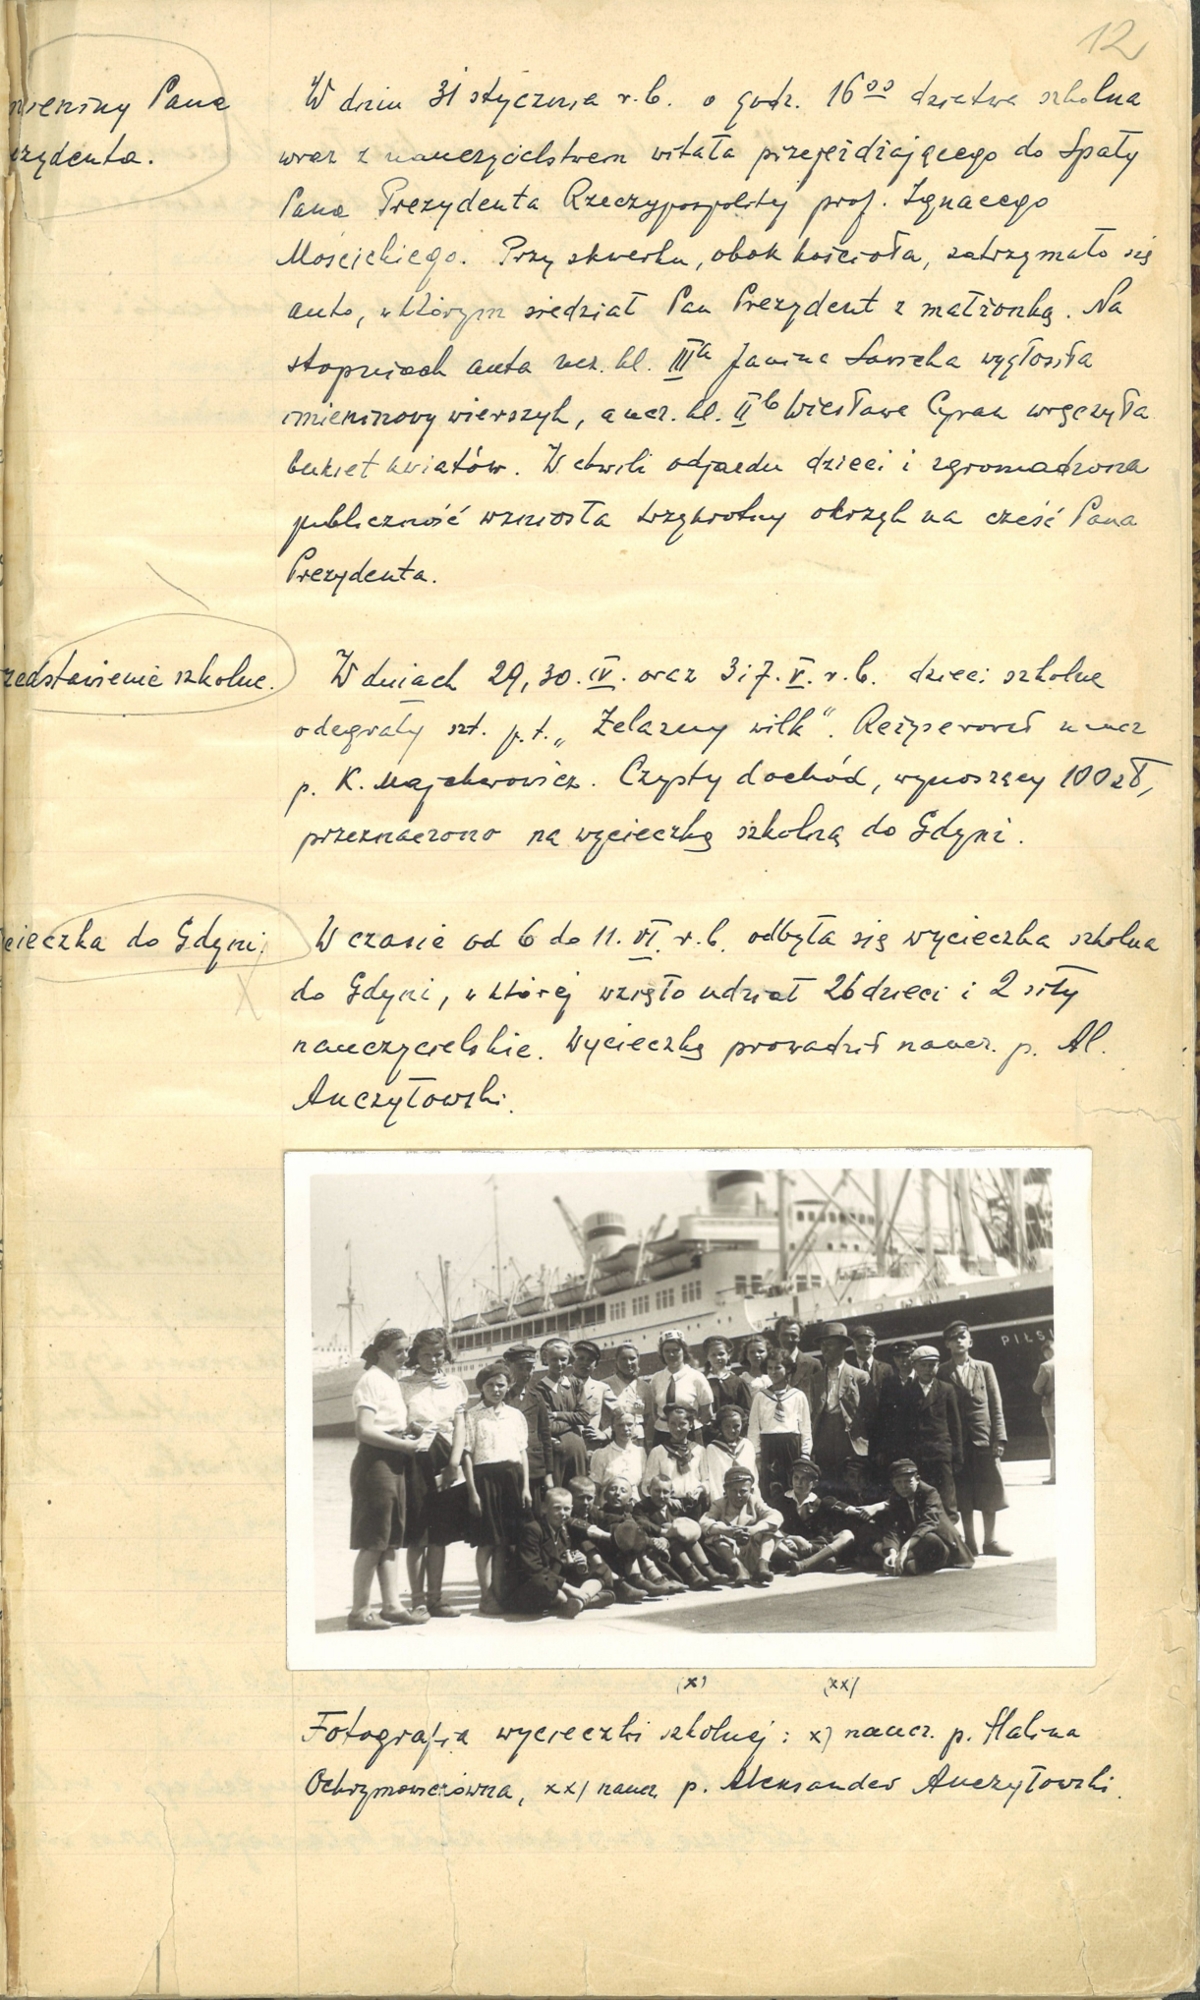 12
mieniny Pana
ezydenta.
W dniu 31 stycznia r.b. o godz. 16⁰⁰ dziatwa szkolna
wraz z nauczycielstwem witała przejeżdżającego do Spały
Pana Prezydenta Rzeczypospolitej prof. Ignacego
Mościckiego. Przy skwerku, obok kościoła, zatrzymało się
auto, w którym siedział Pan Prezydent z małżonką. Na
stopniach auta ucz. kl. IIIa Janina Sawicka wygłosiła
imieninowy wierszyk, a ucz. kl. IIb Wiesława Cyran wręczyła
bukiet kwiatów. W chwili odjazdu dzieci i zgromadzona
publiczność wzniosła trzykrotny okrzyk na cześć Pana
Prezydenta.
zedstawienie szkolne.
W dniach 29, 30. IV. oraz 3 i 7. V. r.b. dzieci szkolne
odegrały szt. p.t. „Żelazny wilk". Reżyserował naucz
p. K. Majchrowicz. Czysty dochód, wynoszący 100 zł,
przeznaczono na wycieczkę szkolną do Gdyni.
cieczka do Gdyni.
W czasie od 6 do 11. VI. r.b. odbyła się wycieczka szkolna
do Gdyni, w której wzięło udział 26 dzieci i 2 siły
nauczycielskie. Wycieczkę prowadził naucz. p. Al.
Anczyłowski.
PIŁS
(x) (xx)
Fotografia wycieczki szkolnej: x) naucz. p. Halina
Ochrymowiczówna, xx) naucz. p. Aleksander Anczyłowski.